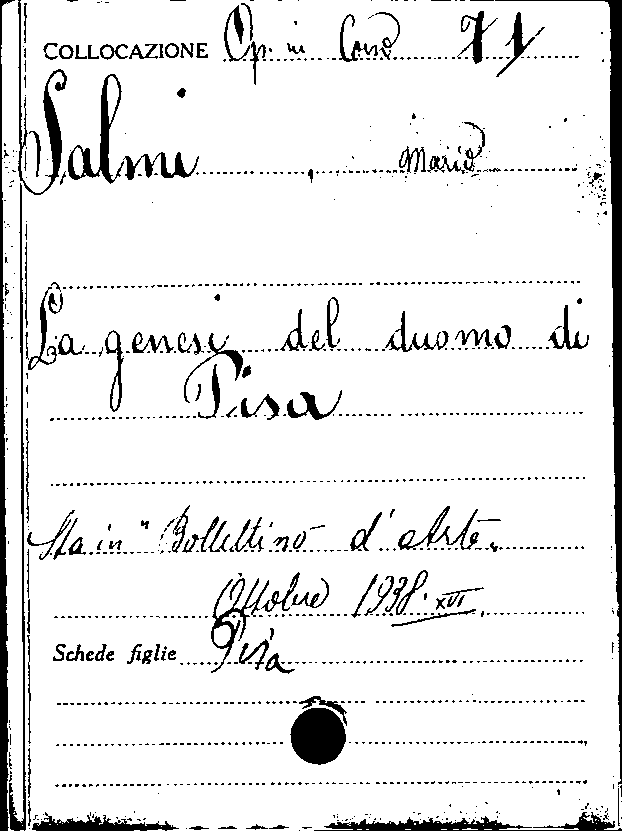 COLLOCAZIONE Op. in Corso 71
Salmi, Mario
La genesi del duomo di
Pisa
Sta in "Bollettino d'Arte"
Ottobre 1938. XVI.
Schede figlie Pisa